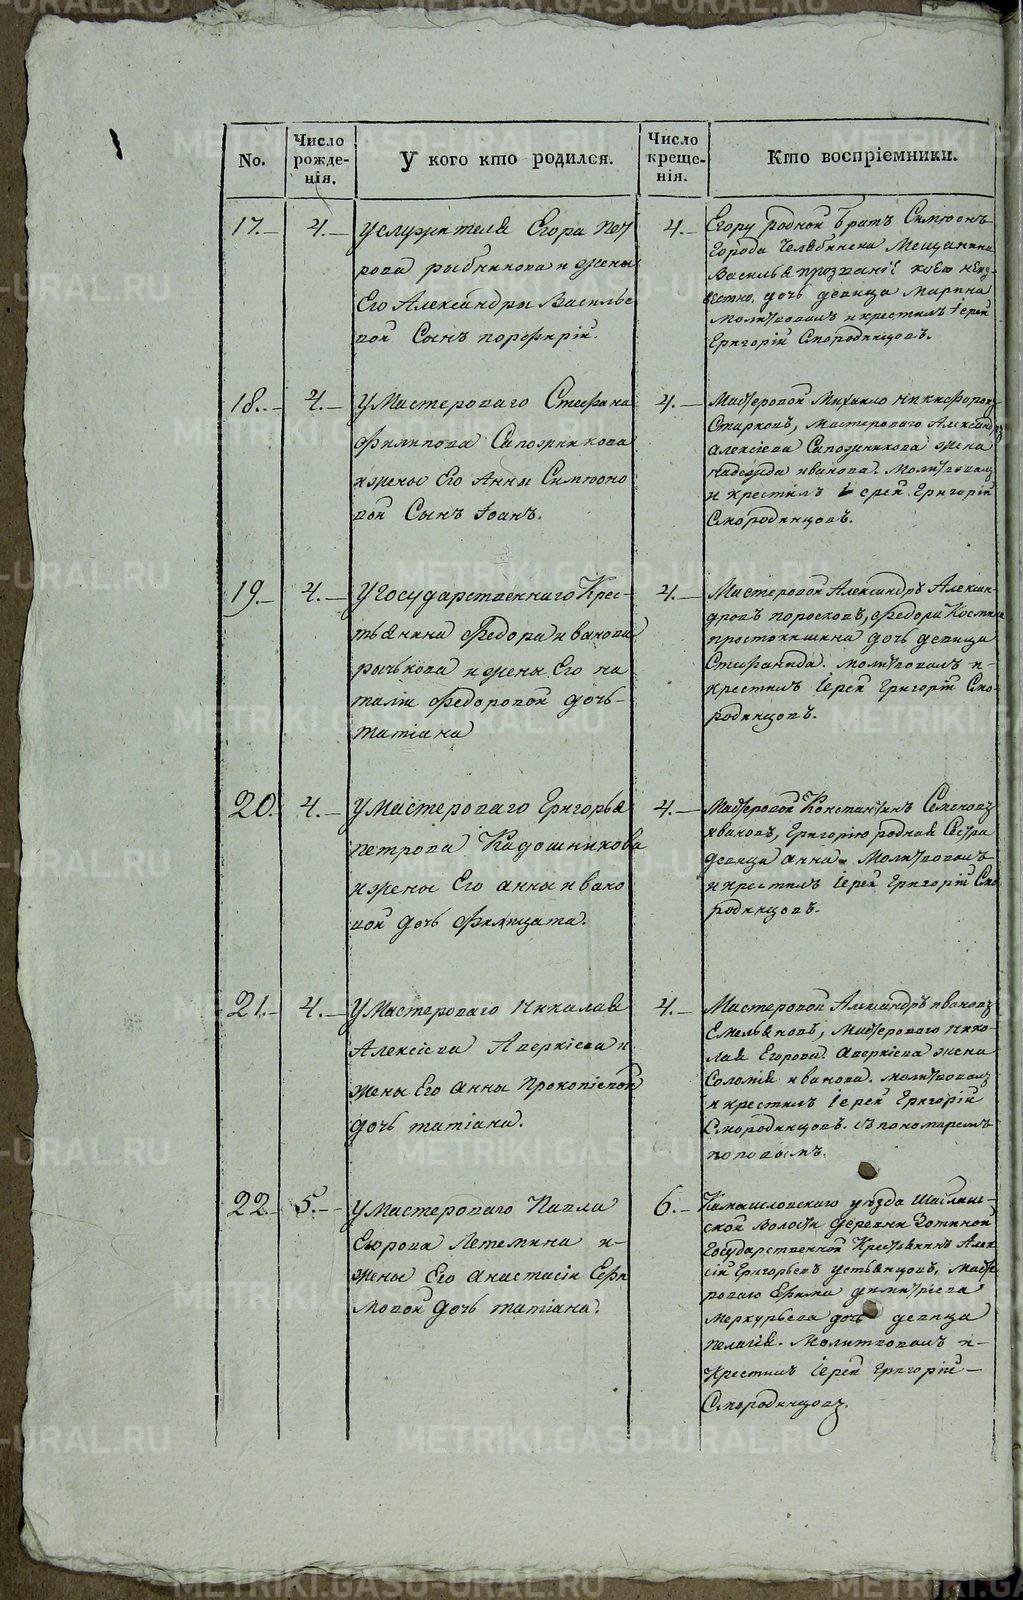 No.
Число рожде-нія.
У кого кто родился.
Число креще-нія.
Кто воспріемники.
17.
4.
услужителя Егора Пет
рова рыбникова и жены
Его Александры Василье
вой Сынъ порфирій.
4.
Егору родной братъ Симеонъ
города Челябинска Мещанина
Василья прозваніе коего неиз
вестно, дочь девица Марина
Молитвовалъ и крестилъ іерей
Григорій Смородинцовъ.
18.
4.
умастероваго Стефана
Филипова Сапожникова
и жены Его Анны Симеоно
вой Сынъ Іоанъ.
4.
Мастеровой Михаило никифоровъ
Старковъ, мастероваго Александра
алексіева Сапожникова жена
надежда иванова. молитвовалъ
и крестилъ іерей Григорій
Смородинцовъ.
19.
4.
угосударственнаго Крес-
тьянина Федора иванова
рычкова и жены Его на
таліи Федоровой дочь
татіана
4.
Мастеровой Александръ Алексан-
дровъ поросковъ, Федора Костина
простокишина дочь девица
Стефанида. молитвовалъ и
крестилъ Іерей Григорій Смо-
родинцовъ.
20.
4.
умастероваго Григорья
петрова Кадошникова
и жены Его анны ивано
вой дочь Филицата.
4.
Мастеровой Константинъ Семеновъ
ивановъ, Григорію родная Сестра
девица анна. Молитвовалъ
и крестилъ Іерей Григорій Смо
родинцовъ.
21.
4.
умастероваго Николая
Алексіева Аверкіева и
жены Его анны Прокопіевой
дочь татіана.
4.
Мастеровой Александръ ивановъ
Емельяновъ, мастероваго нико-
лая Егорова аверкіева жена
Соломія иванова. молитвовалъ
и крестилъ Іерей Григорій
Смородинцовъ. съ пономаремъ
поповымъ.
22
5.
умастероваго Павла
Егорова Летемина и
жены Его анастасіи Ефи
мовой дочь татіана.
6.
Камышловскаго уезда
ской волости деревни Зотиной
Государственной Крестьянинъ Алек
сій Григорьевъ устьянцовъ, масте
роваго Ефима димитріева
Меркурьева дочь девица
пелагія. Молитвовалъ и
Крестилъ Іерей Григорій
Смородинцовъ.
METRIKI.GASO-URAL.RU